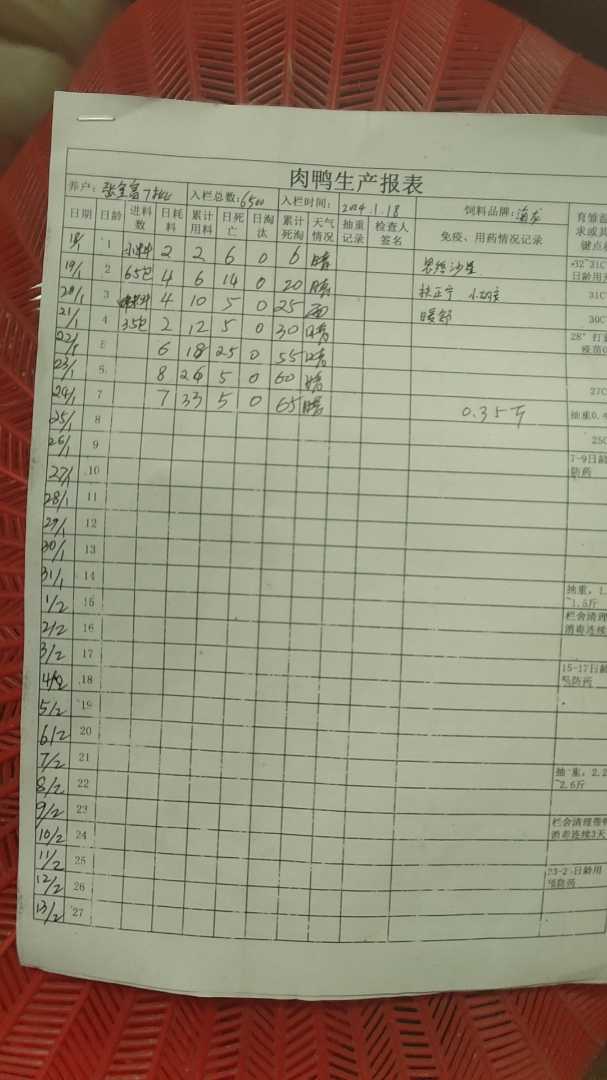 肉鸭生产报表
养户: 入栏总数:6500 入栏时间: 2024.1.18 饲料品牌:
日期 日龄 进料数 日耗料 累计用料 日死亡 日淘汰 累计死淘 天气情况 抽重记录 检查人签名 免疫、用药情况记录
18/1 1 2 2 6 0 6 晴 恩诺沙星 ~32~31C
19/1 2 65包 4 6 14 0 20 晴 扶正宁 日龄用
20/1 3 4 10 5 0 25 雨 31C
21/1 4 35包 2 12 5 0 30 晴 30C
22/1 5 6 18 25 0 55 晴 28° 打
23/1 6 8 26 5 0 60 晴 27C
24/1 7 7 33 5 0 65 晴 0.35斤 抽重0.4
25/1 8 25C
26/1 9 7-9日龄
27/1 10 防药
28/1 11
29/1 12
30/1 13
31/1 14 抽重,1.
1/2 15 ~1.5斤
2/2 16 栏舍清理 消毒连续
3/2 17
4/2 18 15-17日龄 防药
5/2 19
6/2 20
7/2 21
8/2 22 抽重,2.2 ~2.6斤
9/2 23
10/2 24 栏舍清理带 消毒连续3天
11/2 25
12/2 26 日龄用 预防药
13/2 27